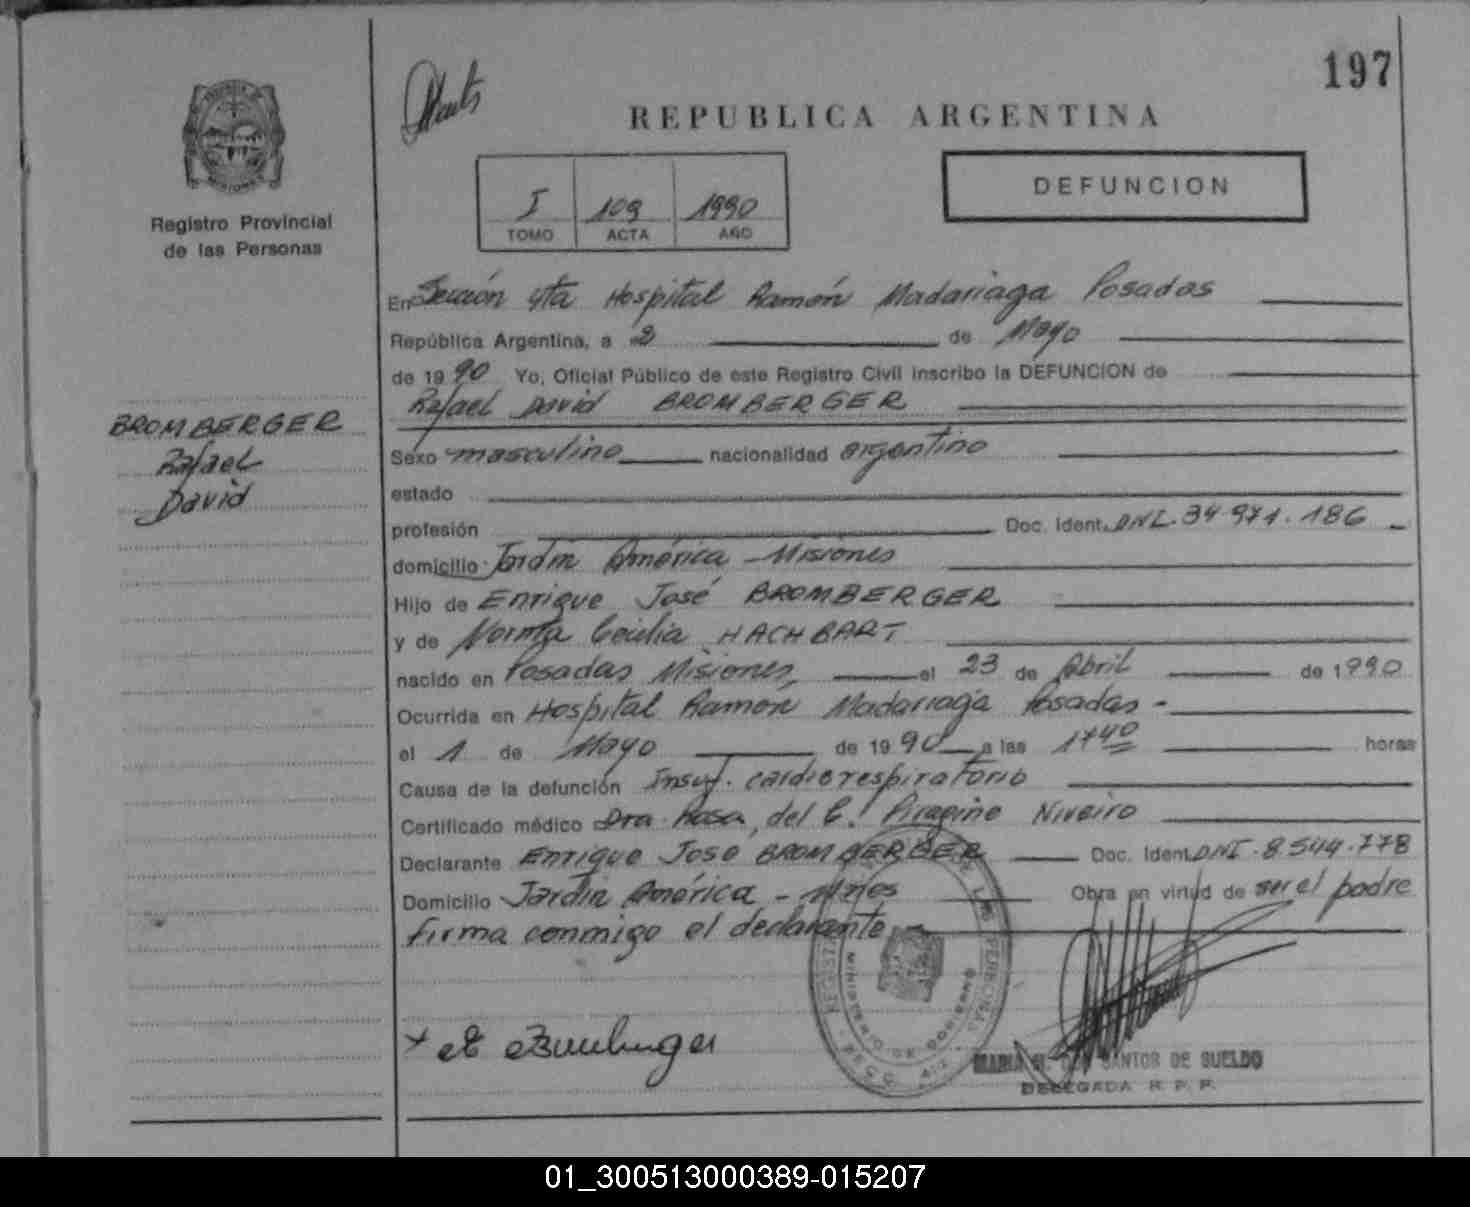 197
REPUBLICA ARGENTINA
Registro Provincial
de las Personas
I 109 1990
TOMO ACTA AÑO
DEFUNCION
BROMBERGER
Rafael
David
En Sección 4ta Hospital Ramón Madariaga Posadas
República Argentina, a 2 de Mayo
de 1990 Yo, Oficial Público de este Registro Civil inscribo la DEFUNCION de
Rafael David BROMBERGER
Sexo masculino nacionalidad argentino
estado
profesión Doc. Ident. DNI. 34.971.186
domicilio Jardín América - Misiones
Hijo de Enrique José BROMBERGER
y de Norma Cecilia HACHBART
nacido en Posadas Misiones, el 23 de Abril de 1990
Ocurrida en Hospital Ramón Madariaga Posadas -
el 1 de Mayo de 1990 a las 1740 horas
Causa de la defunción Insuf. cardiorespiratorio
Certificado médico Dra. Rosa, del C. Piragine Niveiro
Declarante Enrique José BROMBERGER Doc. Ident. DNI. 8.544.778
Domicilio Jardín América - Mnes Obra en virtud de ser el padre
firma conmigo el declarante
MINISTERIO DE GOBIERNO
SANTOS DE SUELDO
DELEGADA R. P. P.
01_300513000389-015207